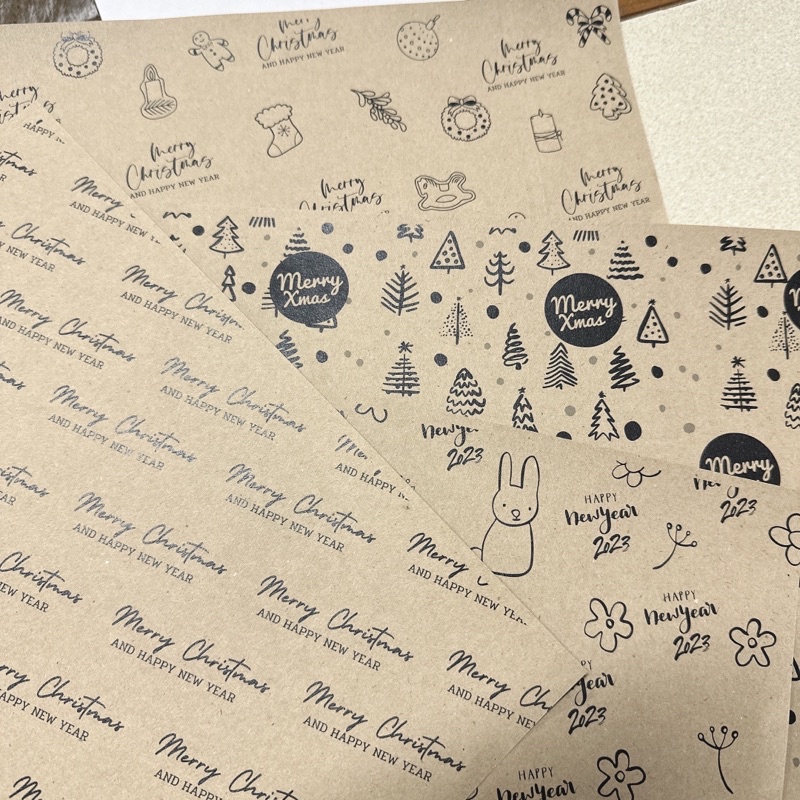 Merry
Christmas
AND HAPPY NEW YEAR
Merry
Christmas
AND HAPPY NEW YEAR
Merry
Christmas
AND HAPPY NEW YEAR
Merry
Christmas
Merry
Christmas
AND HAPPY NEW YEAR
Merry
Xmas
Merry
Xmas
Merry
New Year
2023
HAPPY
New Year
2023
2023
HAPPY
New Year
2023
Year
2023
HAPPY
New Year
Merry
AND HAPPY NEW YEAR
Merry Christmas
AND HAPPY NEW YEAR
Christmas
HAPPY NEW YEAR
Merry Christmas
AND HAPPY NEW YEAR
Merry Christmas
AND HAPPY NEW YEAR
Merry Christmas
AND HAPPY NEW YEAR
Merry Christmas
AND HAPPY NEW YEAR
AND HAPPY
Merry Christmas
AND HAPPY NEW YEAR
Merry Christmas
AND HAPPY NEW YEAR
Merry
AND HAPPY NEW YEAR
Merry Christmas
AND HAPPY NEW YEAR
Merry Christmas
AND HAPPY NEW YEAR
Merry Christmas
AND HAPPY NEW YEAR
Merry Christmas
AND HAPPY NEW YEAR
Merry Christmas
AND HAPPY NEW YEAR
Merry Christmas
AND HAPPY NEW YEAR